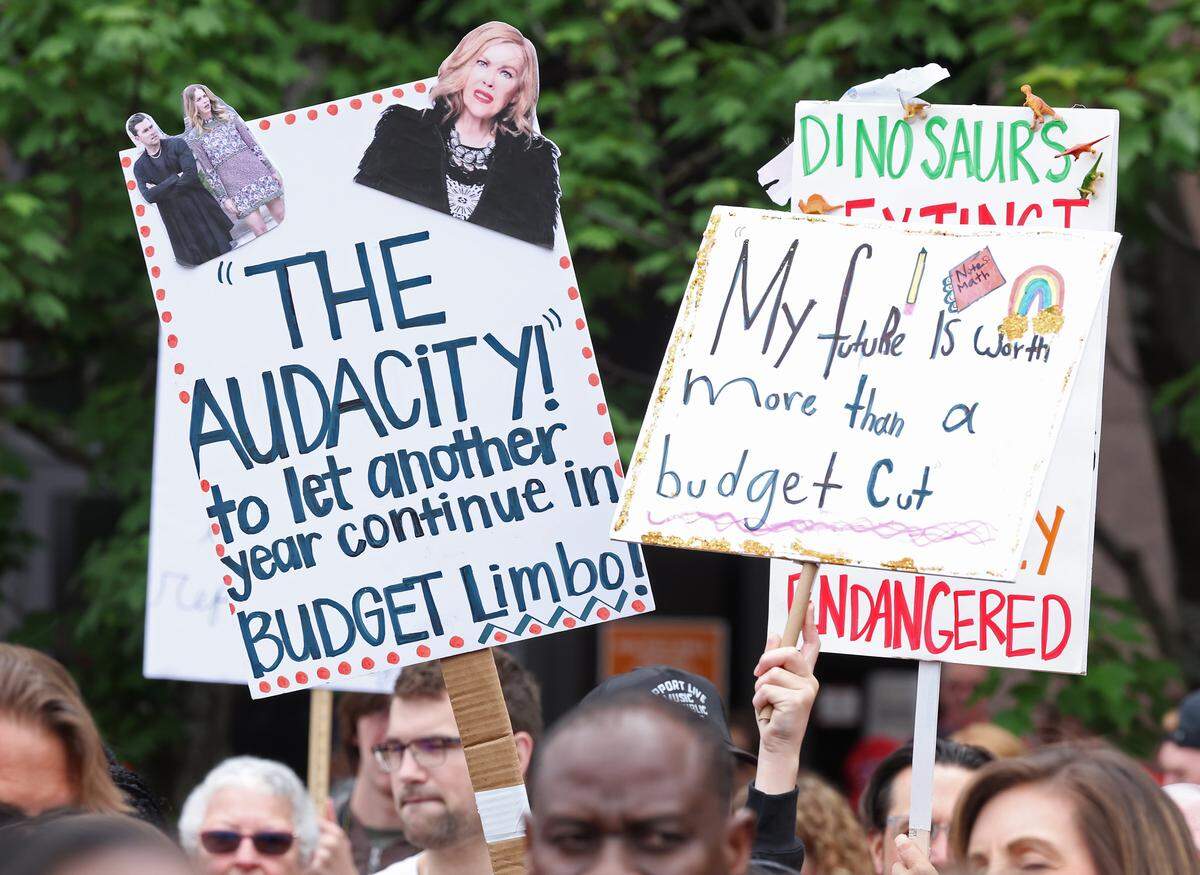 "THE
AUDACITY!"
to let another
year continue in
BUDGET Limbo!
DINOSAURS
EXTINCT
"My futuRe Is worth
Notes:
Math
more than a
budget Cut
ENDANGERED
PORT LIVE
MUSIC